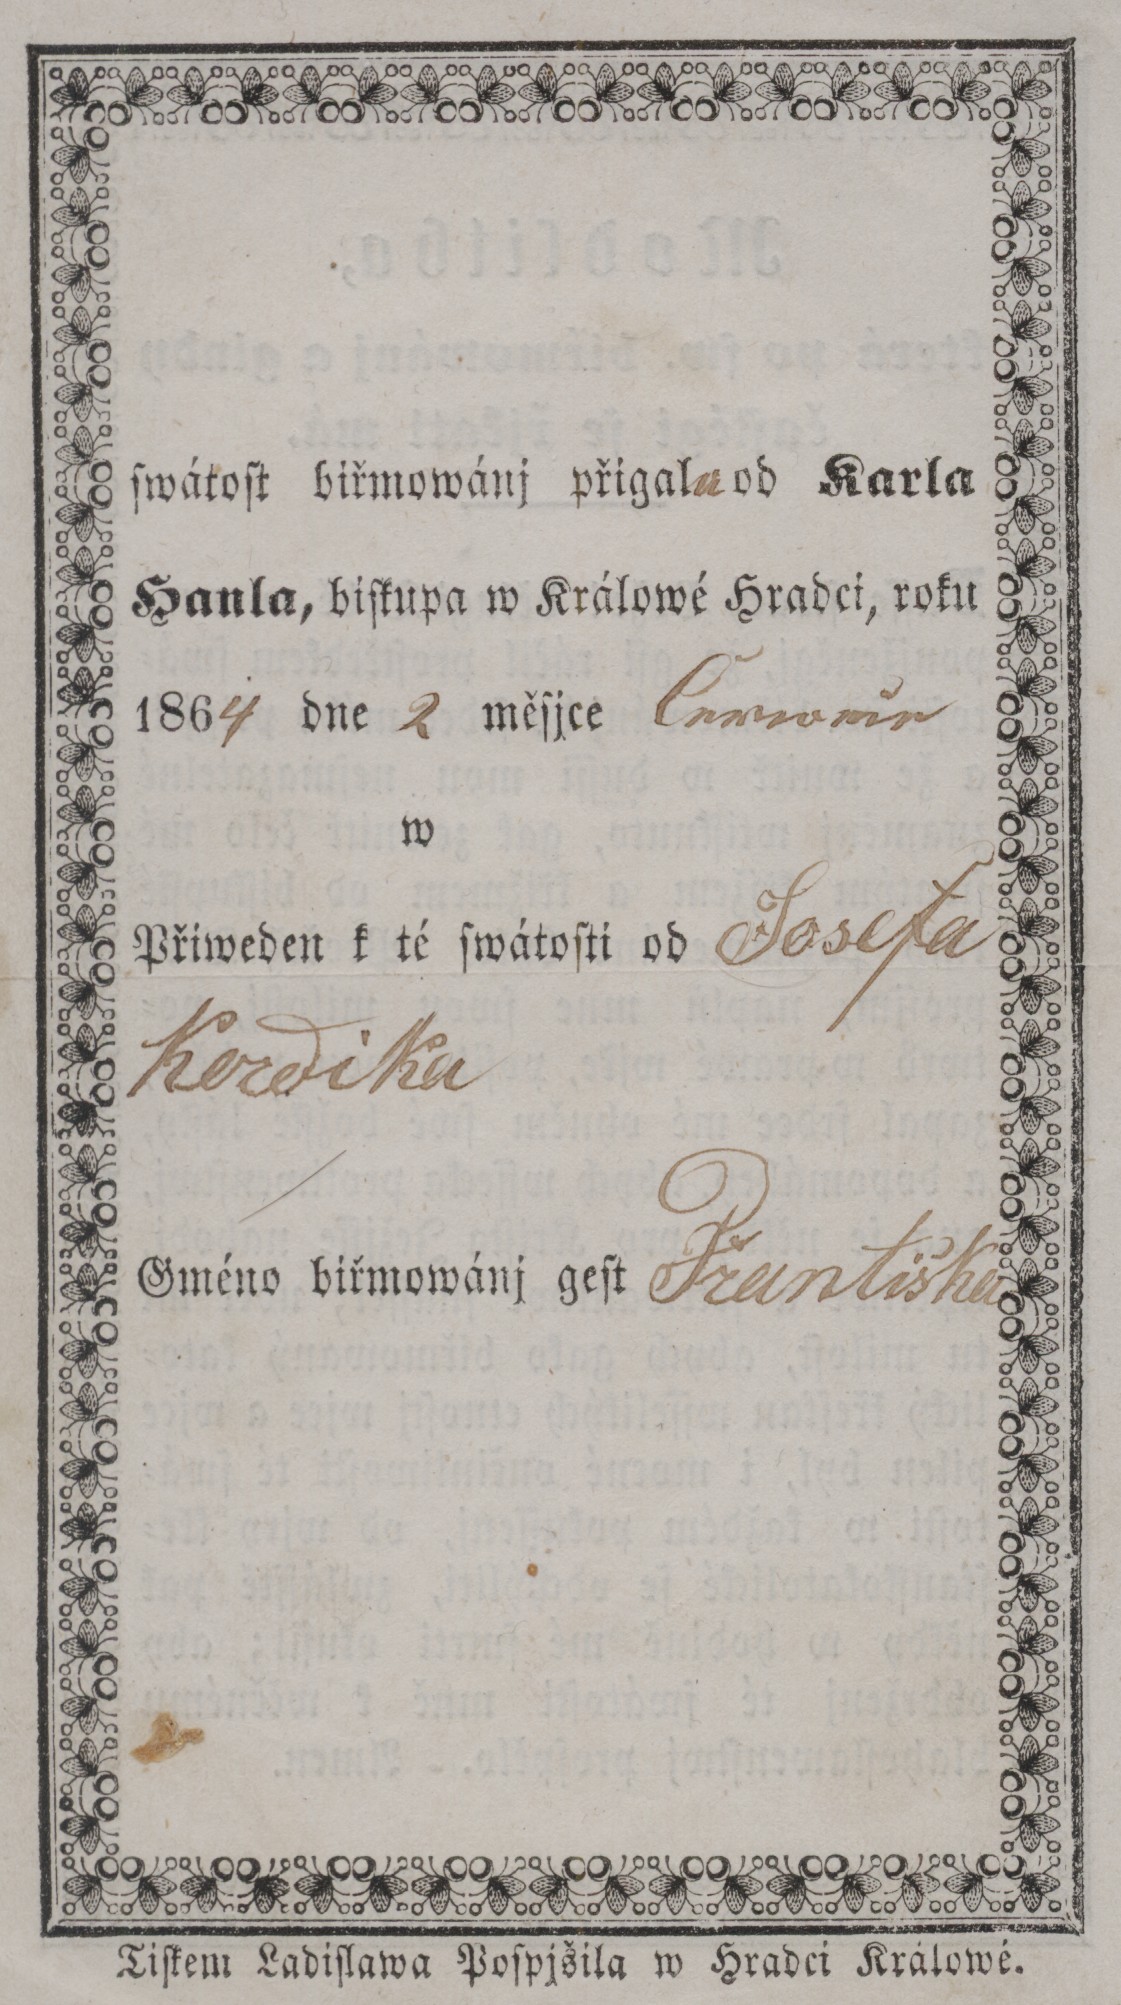 ſwátoſt biřmowánj přigala od Karla
Hanla, biſkupa w Králowé Hradci, roku
1864 dne 2 měſjce Července
w
Přiweden k té ſwátoſti od Josefa
Kordika
Gméno biřmowánj geſt Františka
Tiſkem Ladiſlawa Poſpjšila w Hradci Králowé.